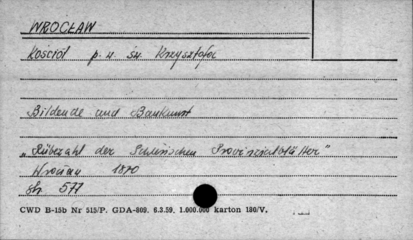 WROCŁAW
Kościół p. w. św. Krzysztofa
Bildende und Baukunst
„Rübezahl der Schlesischen Provinzialblätter"
Wrocław 1870
str 577
CWD B-15b Nr 515/P. GDA-809. 6.3.59. 1.000.000 karton 180/V.